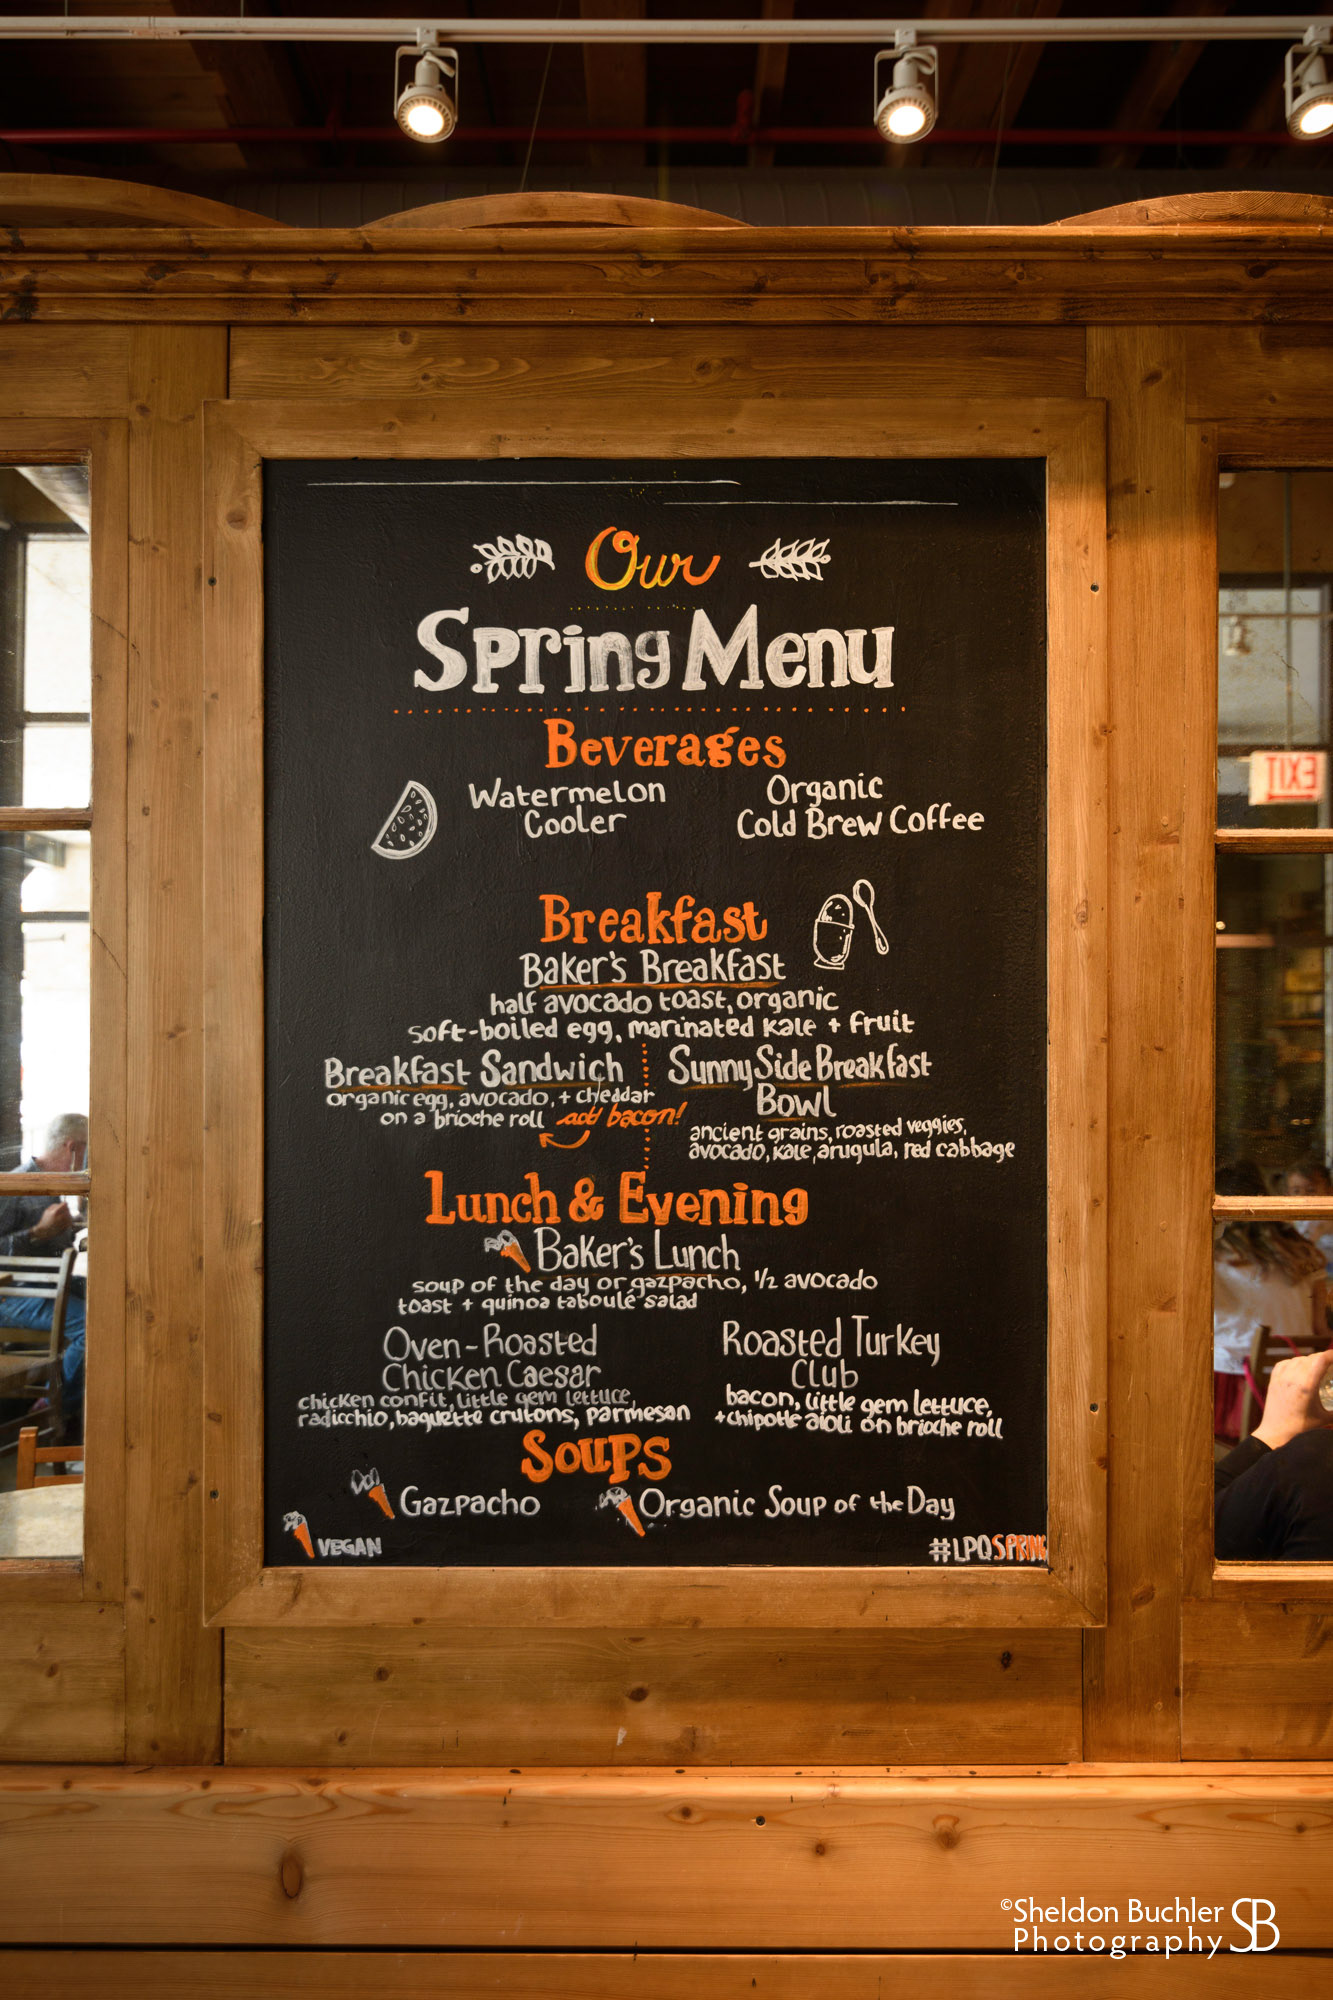 Our
Spring Menu
Beverages
Watermelon
Cooler
Organic
Cold Brew Coffee
Breakfast
Baker's Breakfast
half avocado toast, organic
soft-boiled egg, marinated kale + fruit
Breakfast Sandwich
organic egg, avocado, + cheddar
on a brioche roll add bacon!
Sunny Side Breakfast
Bowl
ancient grains, roasted veggies,
avocado, kale, arugula, red cabbage
Lunch & Evening
Baker's Lunch
soup of the day or gazpacho, 1/2 avocado
toast + quinoa taboulé salad
Oven-Roasted
Chicken Caesar
chicken confit, little gem lettuce,
radicchio, baguette crutons, parmesan
Roasted Turkey
Club
bacon, little gem lettuce,
+ chipotle aioli on brioche roll
Soups
Gazpacho
Organic Soup of the Day
VEGAN
#LPQSPRING
EXIT
©Sheldon Buchler
Photography SB